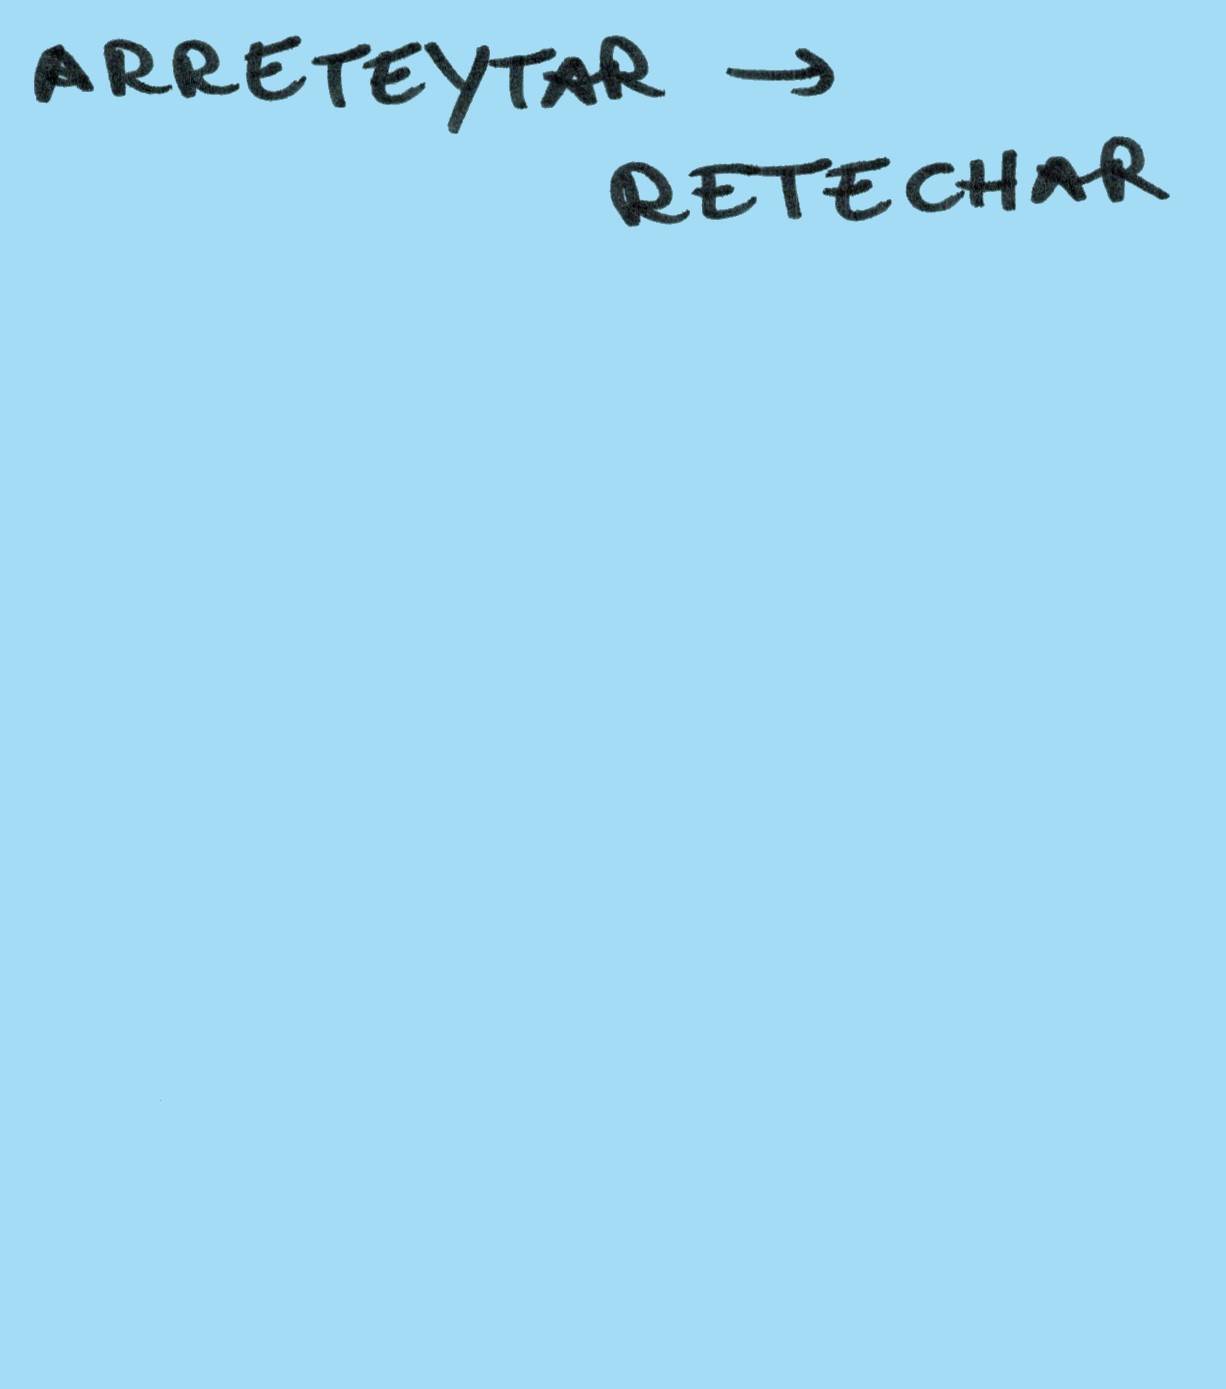 ARRETEYTAR →
RETECHAR